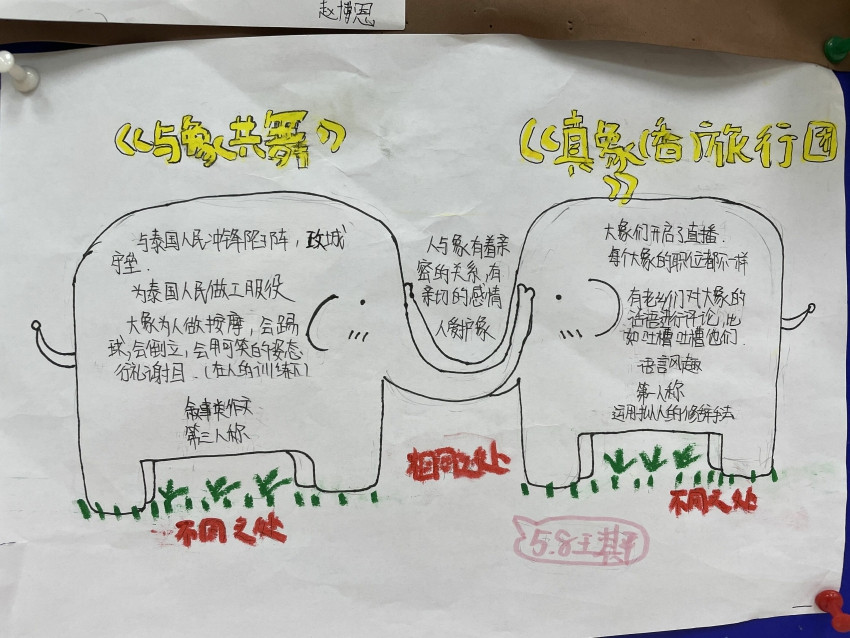 赵博恩
《与象共舞》
《真象(香)旅行团
》
与泰国人民冲锋陷阵，攻城
守垒.
为泰国人民做工服役
大象为人做按摩，会踢
球，会倒立，会用可笑的姿态
行礼谢目.(在人的训练下)
叙事类作文
第三人称
不同之处
人与象有着亲
密的关系，有
亲切的感情
人象护象
相同之处
大象们开启了直播.
每个大象的职位都不一样
有老乡们对大象的
话语进行评论，比
如吐槽吐槽他们.
语言风趣
第一人称
运用拟人的修辞手法
不同之处
5.8王